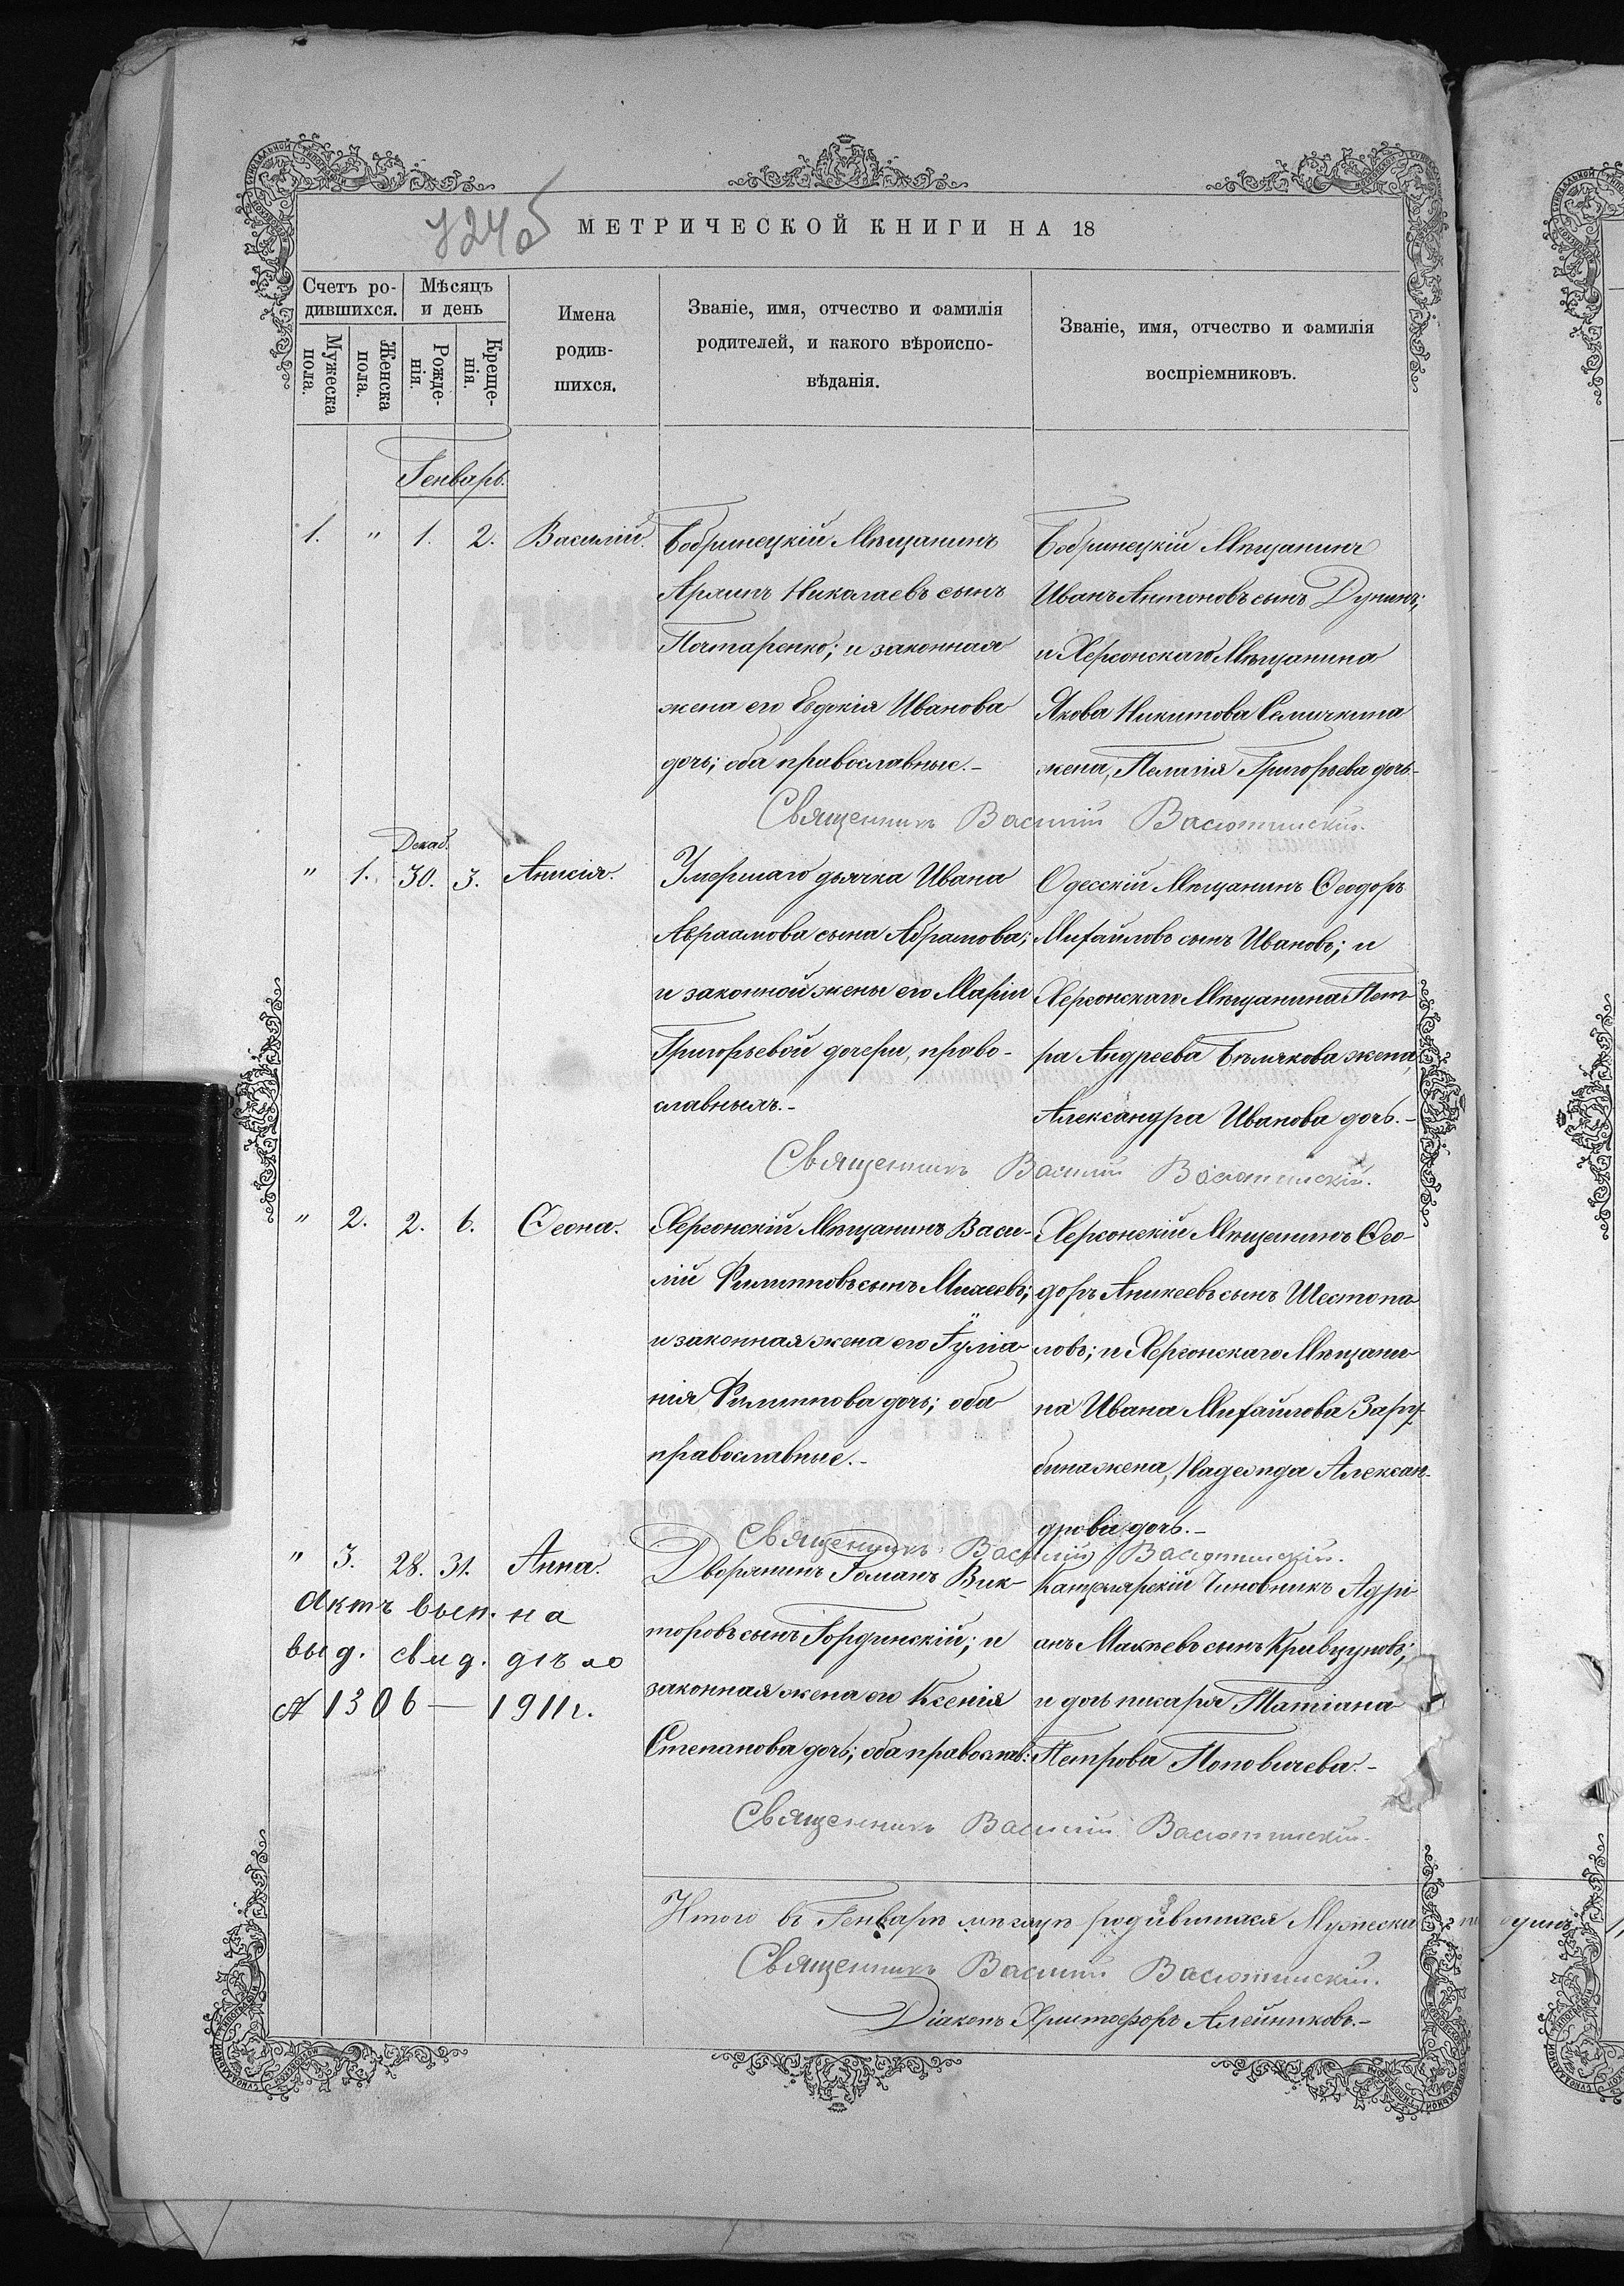 724об
МЕТРИЧЕСКОЙ КНИГИ НА 18
Счетъ ро-
дившихся.
Мужеска
пола.
Женска
пола.
Мѣсяцъ
и день
Рожде-
нія.
Креще-
нія.
Имена
родив-
шихся.
Званіе, имя, отчество и фамилія
родителей, и какого вѣроиспо-
вѣданія.
Званіе, имя, отчество и фамилія
воспріемниковъ.
Генварь.
1. " 1. 2. Василій.
Бобринецкій Мѣщанинъ
Николаевъ сынъ
Почтаренко; и законная
жена его Евдокія Иванова
дочь; оба православные.-
Бобринецкій Мѣщанинъ
Иванъ Антоновъ сынъ Дунинъ;
и Херсонскаго Мѣщанина
Якова Никитова Семичкина
жена, Пелагія Григорьева дочь-
Священникъ Василій Васютинскій.
Декаб.
" 1. 30. 3. Анисія.
Умершаго дьячка Ивана
Авраамова сына Абрамова;
и законной жены его Маріи
Григорьевой дочери, право-
славныхъ.-
Одесскій Мѣщанинъ Ѳеодоръ
Михайловъ сынъ Ивановъ; и
Херсонскаго Мѣщанина Пет-
ра Андреева Бѣлякова жена,
Александра Иванова дочь.-
Священникъ Василій Васютинскій.
" 2. 2. 6. Ѳеона.
Херсонскій Мѣщанинъ Васи-
лій Филипповъ сынъ Михеевъ;
и законная жена его Іуліа-
нія Филиппова дочь; оба
православные.-
Херсонскій Мѣщанинъ Ѳео-
доръ Аникеевъ сынъ Шестопа-
ловъ; и Херсонскаго Мѣщани-
на Ивана Михайлова Зару-
бина жена, Надежда Алексан-
дрова дочь.-
Священникъ Василій Васютинскій.
" 3. 28. 31. Анна.
Актъ вып. на
выд. свид. дѣло
№ 1306 — 1911г.
Дворянинъ Романъ Вик-
торовъ сынъ Гординскій; и
законная жена его Ксенія
Степанова дочь; оба православ:
Канцелярскій Чиновникъ Адрі-
анъ Макѣевъ сынъ Кривцуновъ;
и дочь писаря Татіана
Петрова Поповичева.-
Священникъ Василій Васютинскій.
Итого въ Генварѣ мѣсяцѣ родившихся Мужеска
Священникъ Василій Васютинскій.
Діаконъ Христофоръ Алейниковъ.-